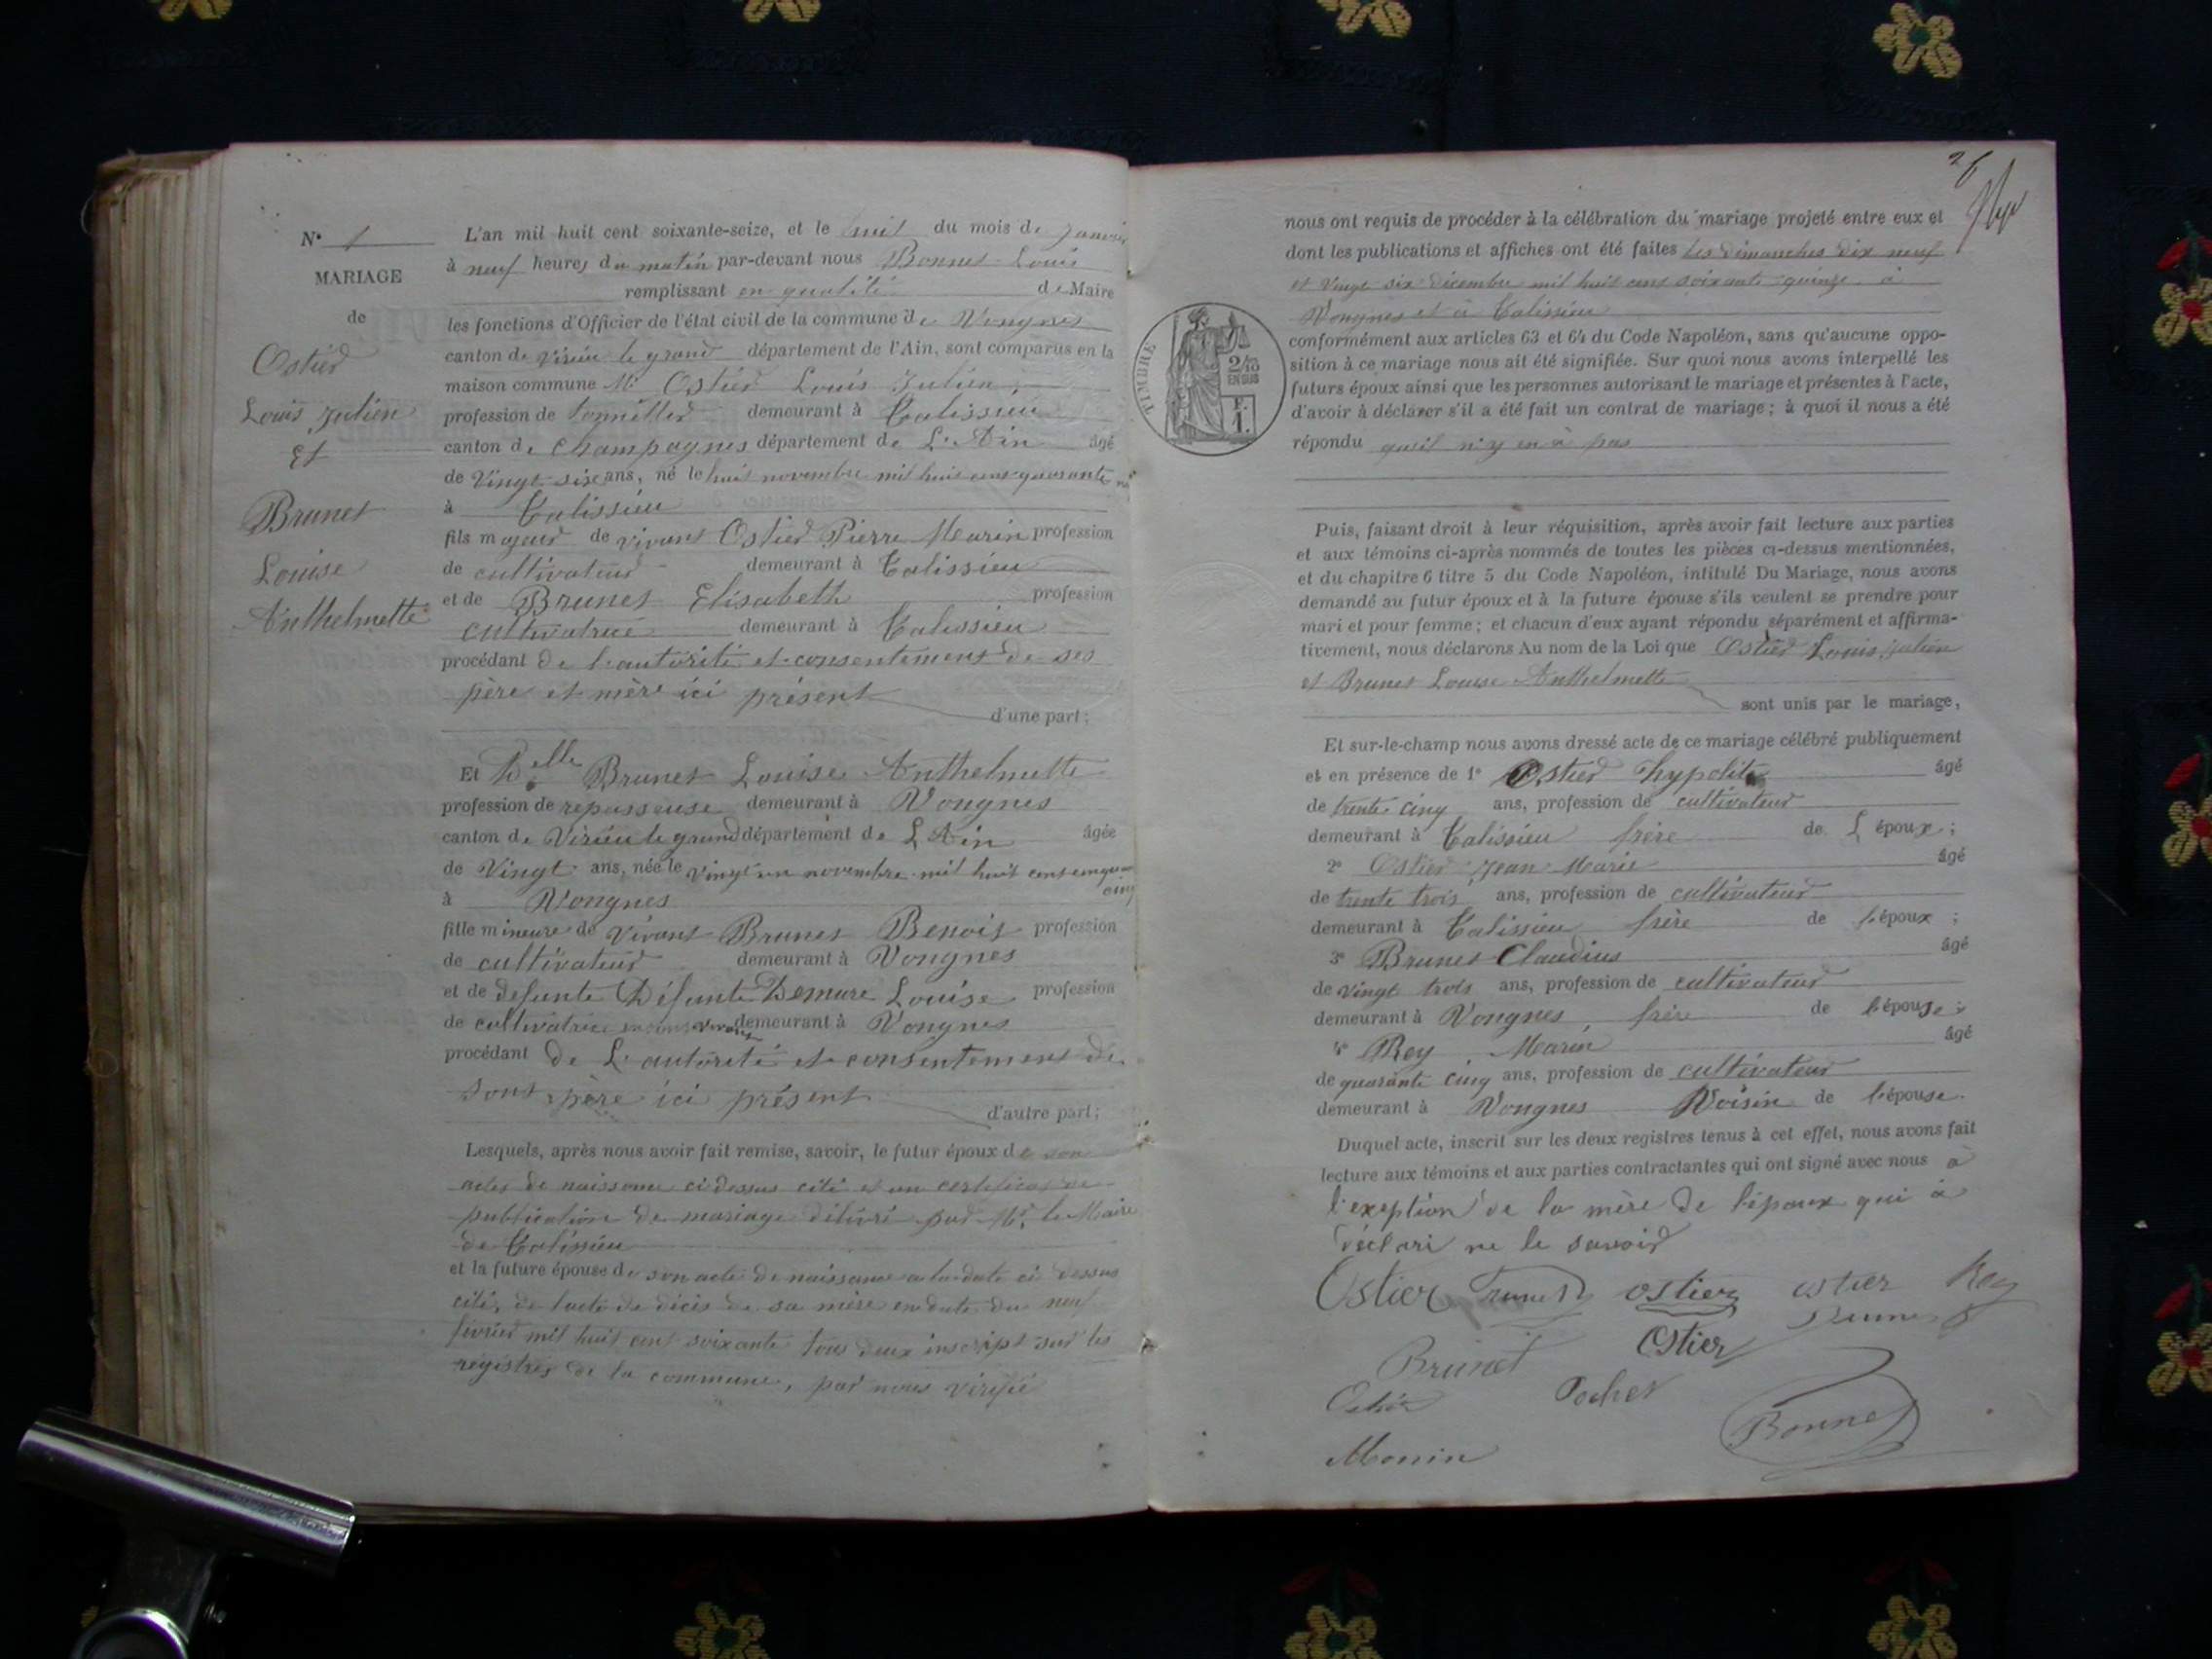 N° 1
MARIAGE
de
Ostier
Louis Julien
Et
Brunet
Louise
Anthelmette
L'an mil huit cent soixante-seize, et le huit du mois de Janvier
à neuf heures du matin par-devant nous Bonnet Louis
remplissant en qualité de Maire
les fonctions d'Officier de l'état civil de la commune de Vongnes
canton de Virieu le grand département de l'Ain, sont comparus en la
maison commune Mr Ostier Louis Julien
profession de tonnellier demeurant à Talissieu
canton de Champagnes département de L'Ain âgé
de Vingt-six ans, né le huit novembre mil huit cent quarante
à Talissieu
fils majeur de vivant Ostier Pierre Marin profession
de cultivateur demeurant à Talissieu
et de Brunet Elisabeth profession
cultivatrice demeurant à Talissieu
procédant de l'autorité et consentement de ses
père et mère ici présent
d'une part;
Et Delle Brunet Louise Anthelmette
profession de repasseuse demeurant à Vongnes
canton de Virieu le grand département de L'Ain âgée
de Vingt ans, née le vingt un novembre mil huit cent cinquante
cinq
à Vongnes
fille mineure de Vivant Brunet Benoit profession
de cultivateur demeurant à Vongnes
et de defunte Défunte Demure Louise profession
de cultivatrice demeurant à Vongnes
procédant de L'autorité et consentement de
sont père ici présent
d'autre part;
Lesquels, après nous avoir fait remise, savoir, le futur époux de son
actes de naissance ci dessus cité et un certificat de
publication de mariage délivré par Mr le Maire
de Talissieu
et la future épouse de son acte de naissance a la date ci dessus
cité, de l'acte de décès de sa mère en date du neuf
février mil huit cent soixante tous deux inscript sur les
régistres de la commune, par nous vérifié
26
nous ont requis de procéder à la célébration du mariage projeté entre eux et
dont les publications et affiches ont été faites les dimanches dix neuf
et Vingt six décembre mil huit cent soixante quinze à
Vongnes et à Talissieu
conformément aux articles 63 et 64 du Code Napoléon, sans qu'aucune oppo-
sition à ce mariage nous ait été signifiée. Sur quoi nous avons interpellé les
futurs époux ainsi que les personnes autorisant le mariage et présentes à l'acte,
d'avoir à déclarer s'il a été fait un contrat de mariage; à quoi il nous a été
répondu qu'il n'y en à pas
TIMBRE
2/10
EN SUS
F.
1.
Puis, faisant droit à leur réquisition, après avoir fait lecture aux parties
et aux témoins ci-après nommés de toutes les pièces ci-dessus mentionnées,
et du chapitre 6 titre 5 du Code Napoléon, intitulé Du Mariage, nous avons
demandé au futur époux et à la future épouse s'ils veulent se prendre pour
mari et pour femme; et chacun d'eux ayant répondu séparément et affirma-
tivement, nous déclarons Au nom de la Loi que Ostier Louis Julien
et Brunet Louise Anthelmette
sont unis par le mariage,
Et sur-le-champ nous avons dressé acte de ce mariage célébré publiquement
et en présence de 1° Ostier hypolite âgé
de trente cinq ans, profession de cultivateur
demeurant à Talissieu frère de L'époux;
2° Ostier Jean Marie âgé
de trente trois ans, profession de cultivateur
demeurant à Talissieu frère de l'époux;
3° Brunet Claudius âgé
de vingt trois ans, profession de cultivateur
demeurant à Vongnes frère de l'épouse;
4° Rey Marin âgé
de quarante cinq ans, profession de cultivateur
demeurant à Vongnes Voisin de l'épouse.
Duquel acte, inscrit sur les deux registres tenus à cet effet, nous avons fait
lecture aux témoins et aux parties contractantes qui ont signé avec nous à
l'exeption de la mère de l'époux qui à
déclaré ne le savoir
Ostier Brunet ostier ostier Rey
Brunet
Ostier
Brunet
Ostier Pochet
Bonnet
Monin